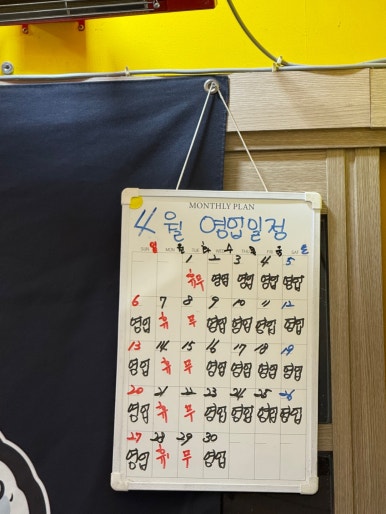 MONTHLY PLAN
4월 영업일정
SUN 일 MON 월 TUE 화 WED 수 THU 목 FRI 금 SAT 토
1 2 3 4 5
휴무 영업 영업 영업 영업
6 7 8 9 10 11 12
영업 휴 무 영업 영업 영업 영업
13 14 15 16 17 18 19
영업 휴 무 영업 영업 영업 영업
20 21 22 23 24 25 26
영업 휴 무 영업 영업 영업 영업
27 28 29 30
영업 휴 무 영업